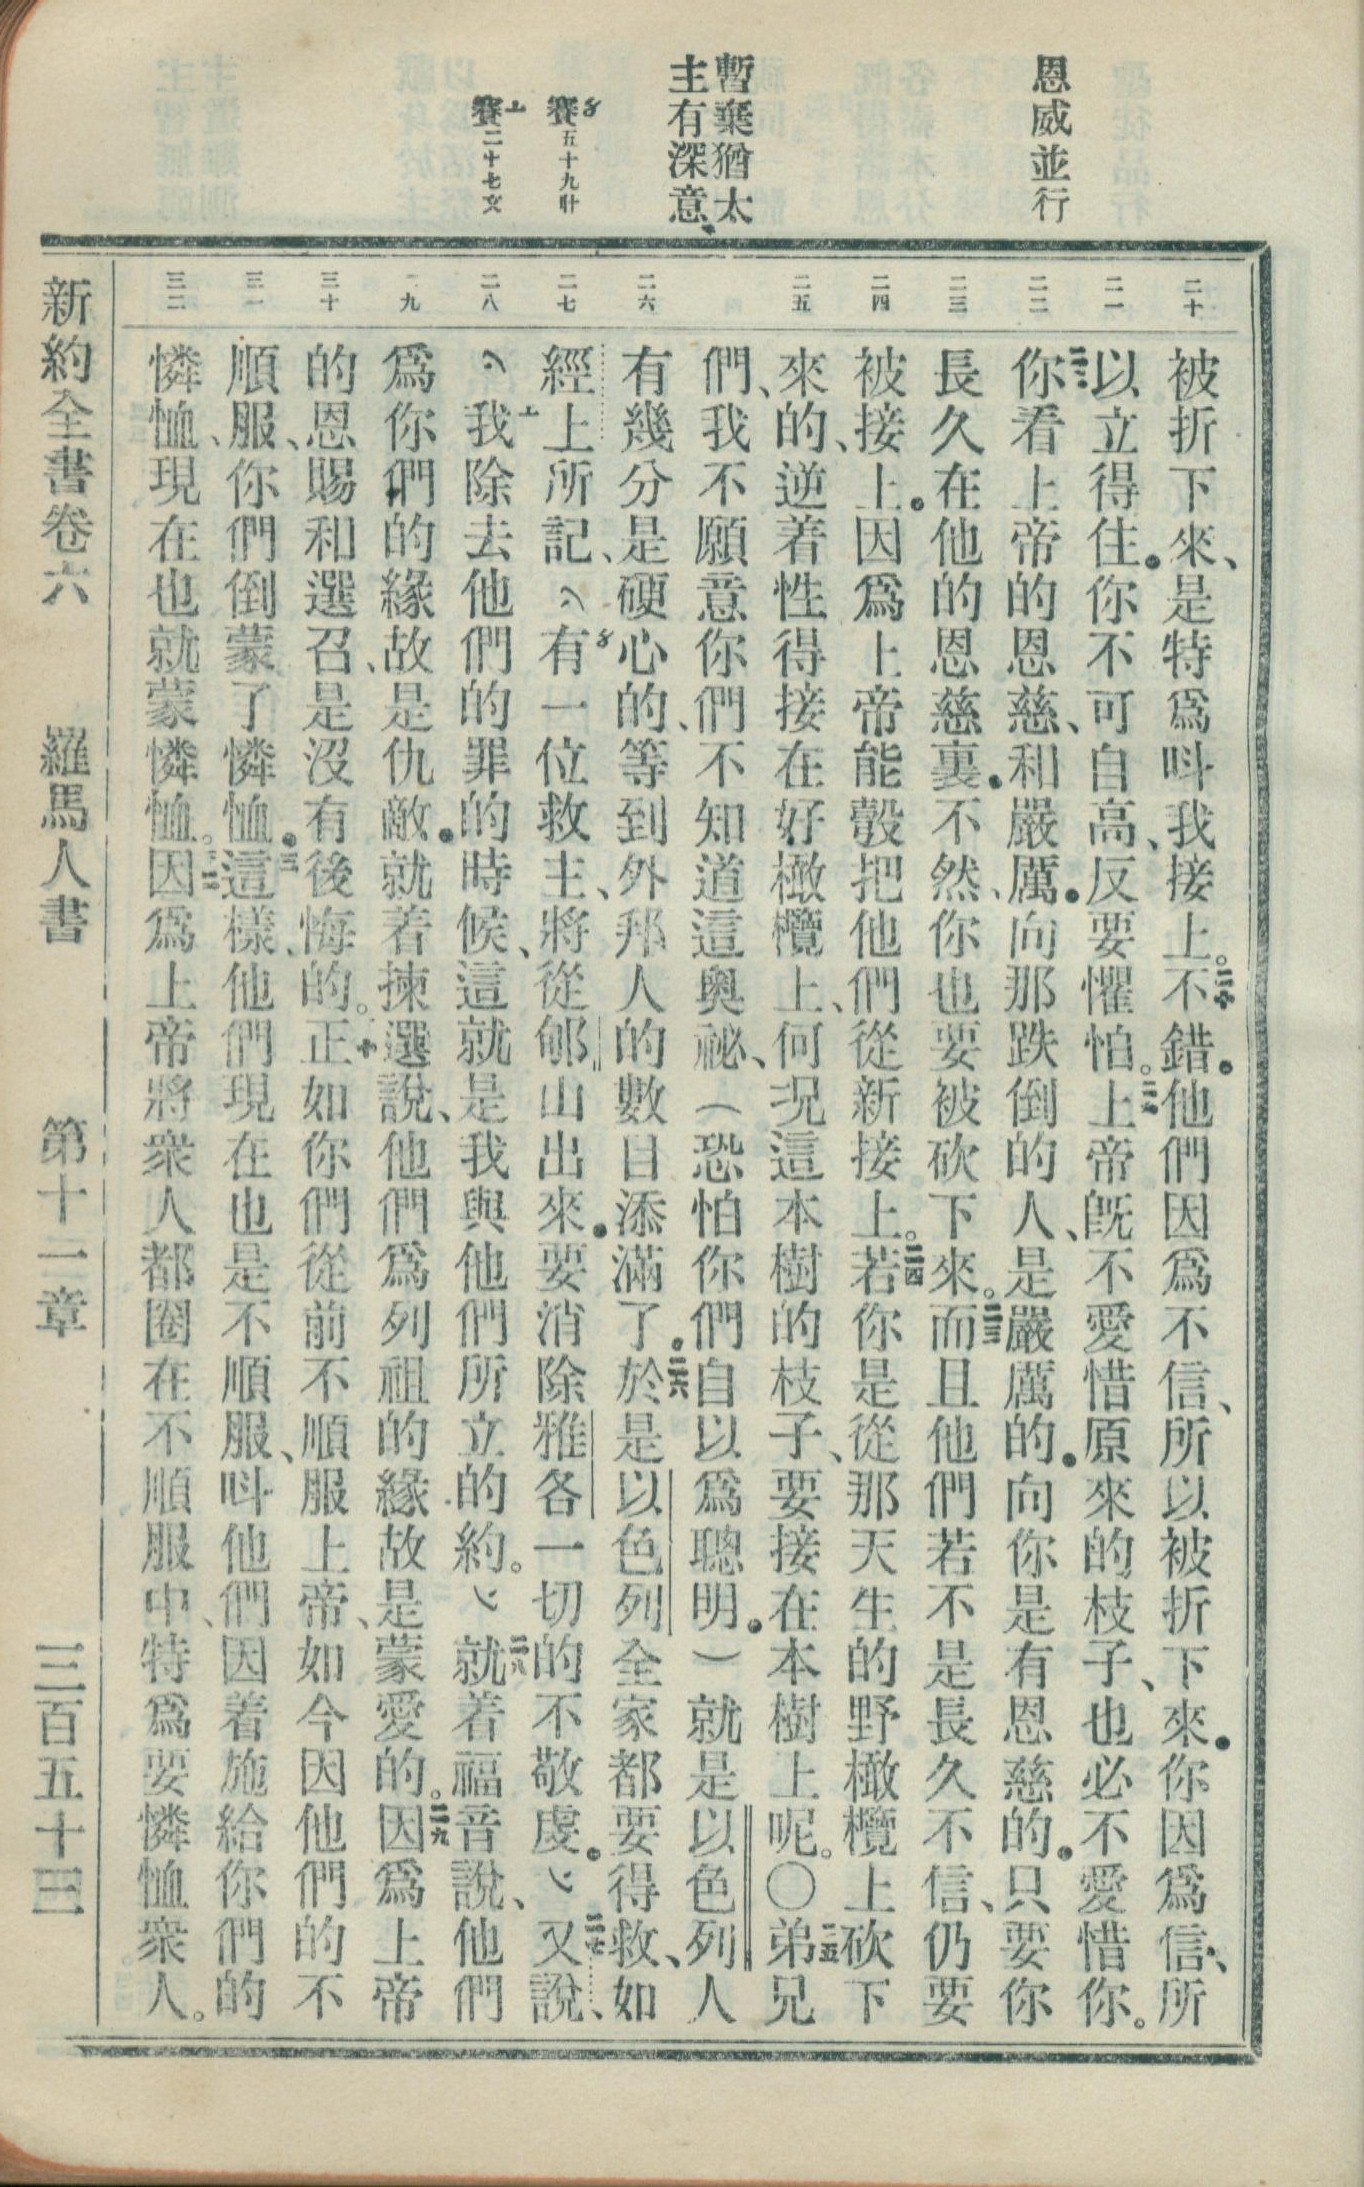 恩威並行
暫棄猶太
主有深意
賽五十九
賽二十七
二十
二一
二二
二三
二四
二五
二六
二七
二八
九
三十
三一
三二
被折下來、是特爲呌我接上。二十不錯.他們因爲不信、所以被折下來.你因爲信、所
以立得住.你不可自高、反要懼怕。二一上帝旣不愛惜原來的枝子、也必不愛惜你。
二二你看上帝的恩慈、和嚴厲.向那跌倒的人、是嚴厲的.向你是有恩慈的.只要你
長久在他的恩慈裏.不然、你也要被砍下來。二三而且他們若不是長久不信、仍要
被接上.因爲上帝能彀把他們從新接上。二四若你是從那天生的野橄欖上砍下
來的、逆着性得接在好橄欖上、何况這本樹的枝子、要接在本樹上呢。〇二五弟兄
們、我不願意你們不知道這奧祕、(恐怕你們自以爲聰明.)就是以色列人
有幾分是硬心的、等到外邦人的數目添滿了.二六於是以色列全家都要得救、如
經上所記、有一位救主、將從郇山出來.要消除雅各一切的不敬虔.二七又說、
我除去他們的罪的時候、這就是我與他們所立的約。二八就着福音說、他們
爲你們的緣故、是仇敵.就着揀選說、他們爲列祖的緣故是蒙愛的。二九因爲上帝
的恩賜和選召、是沒有後悔的。三十正如你們從前不順服上帝、如今因他們的不
順服、你們倒蒙了憐恤.三一這樣、他們現在也是不順服、呌他們因着施給你們的
憐恤、現在也就蒙憐恤。三二因爲上帝將衆人都圈在不順服中、特爲要憐恤衆人。
新約全書卷六 羅馬人書 第十一章 三百五十三